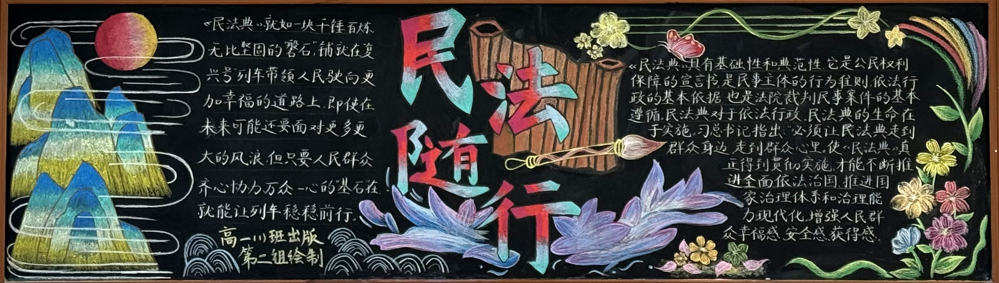 《民法典》就如一块千锤百炼
无比坚固的“磐石”铺就在复
兴号列车带领人民驶向更
加幸福的道路上,即使在
未来可能还要面对更多更
大的风浪,但只要人民群众
齐心协力万众一心的基石在
就能让列车稳稳前行。
高一(1)班出版
第二组绘制
民法
随行
《民法典》具有基础性和典范性,它是公民权利
保障的宣言书,是民事主体的行为准则,依法行
政的基本依据,也是法院裁判民事案件的基本
遵循,民法典对于依法行政,民法典的生命在
于实施,习总书记指出“必须让民法典走到
群众身边,走到群众心里,使《民法典》真
正得到贯彻实施,才能不断推
进全面依法治国,推进国
家治理体系和治理能
力现代化,增强人民群
众幸福感,安全感,获得感。